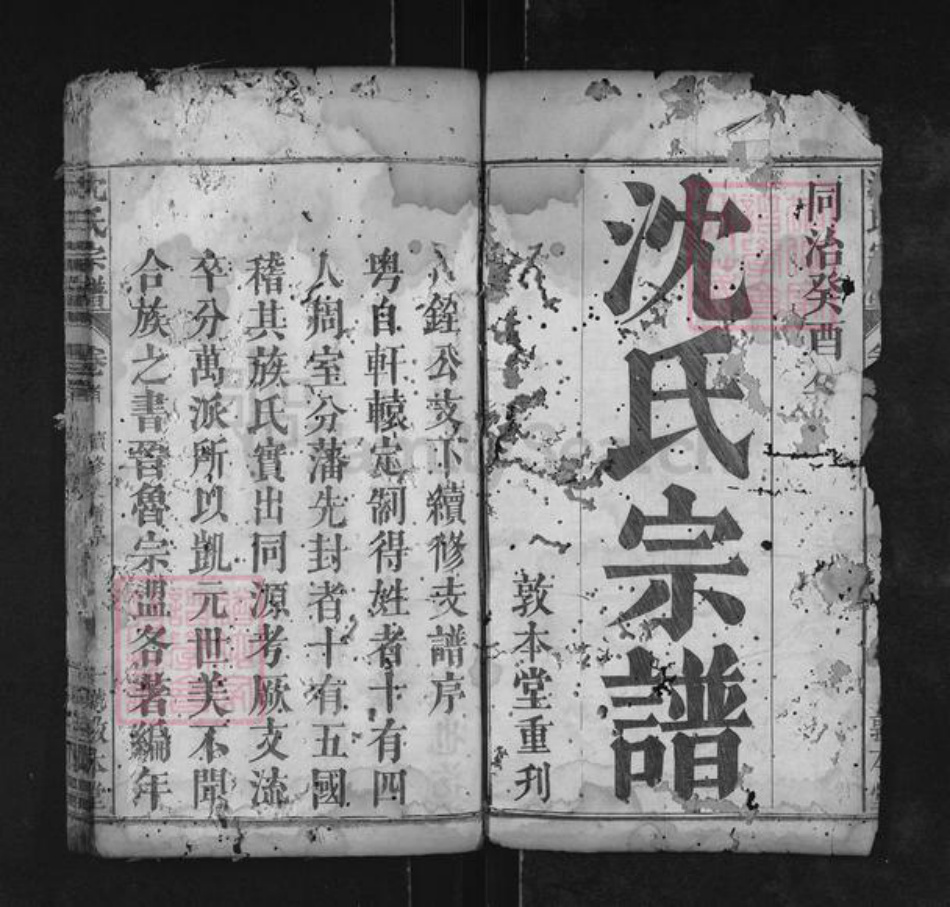 同治癸酉
沈氏宗譜
敦本堂重刊
八銓公支下續修支譜序
粵自軒轅定制得姓者十有四
人周室分藩先封者十有五國
稽其族氏實出同源考厥支流
卒分萬派所以凱元世美不聞
合族之書晉魯宗盟各著編年
沈氏宗譜
卷首
續修
敦本堂